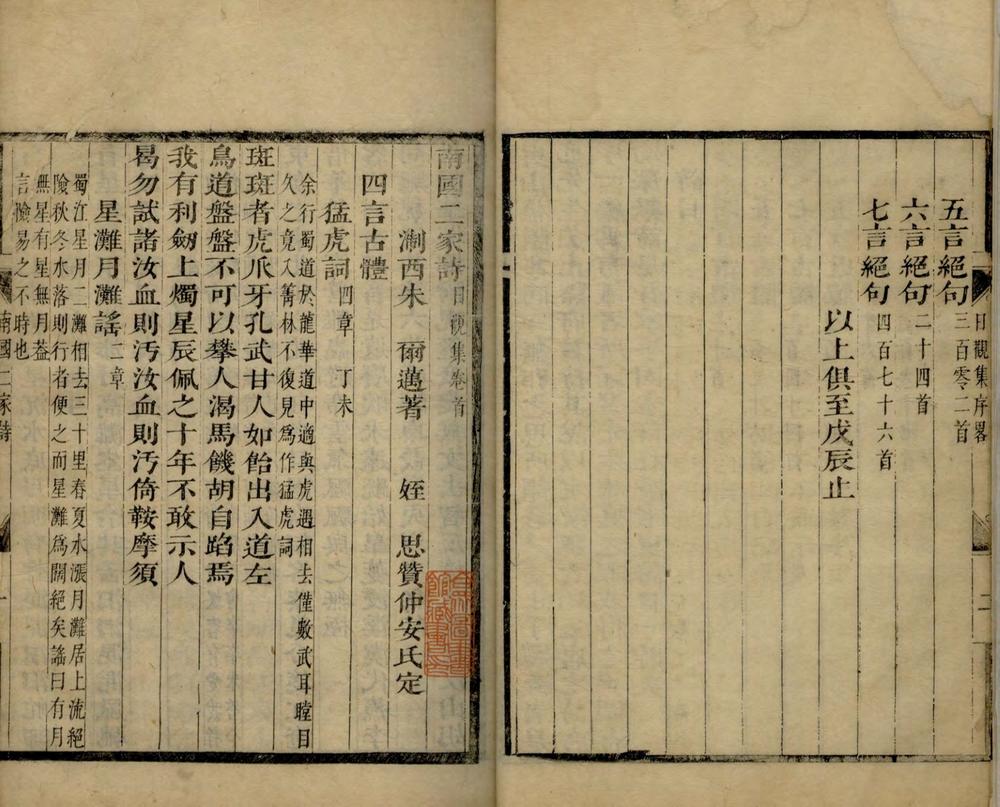 日觀集序畧
二
五言絕句三百零二首
六言絕句二十四首
七言絕句四百七十六首
以上俱至戊辰止
南國二家詩日觀集卷首
淛西朱 爾邁著 姪 思贊仲安氏定
四言古體
猛虎詞四章 丁未
余行蜀道於龍華道中適與虎遇相去僅數武耳瞠目
久之竟入菁林不復見為作猛虎詞
斑斑者虎爪牙孔武甘人如飴出入道左
鳥道盤盤不可以攀人渴馬饑胡自蹈焉
我有利劒上燭星辰佩之十年不敢示人
曷勿試諸汝血則汚汝血則汚倚鞍摩須
星灘月灘謠二章
蜀江星月二灘相去三十里春夏水漲月灘居上流絕
險秋冬水落則行者便之而星灘為關絕矣謠曰有月
無星有星無月葢
言險易之不時也
南國二家詩